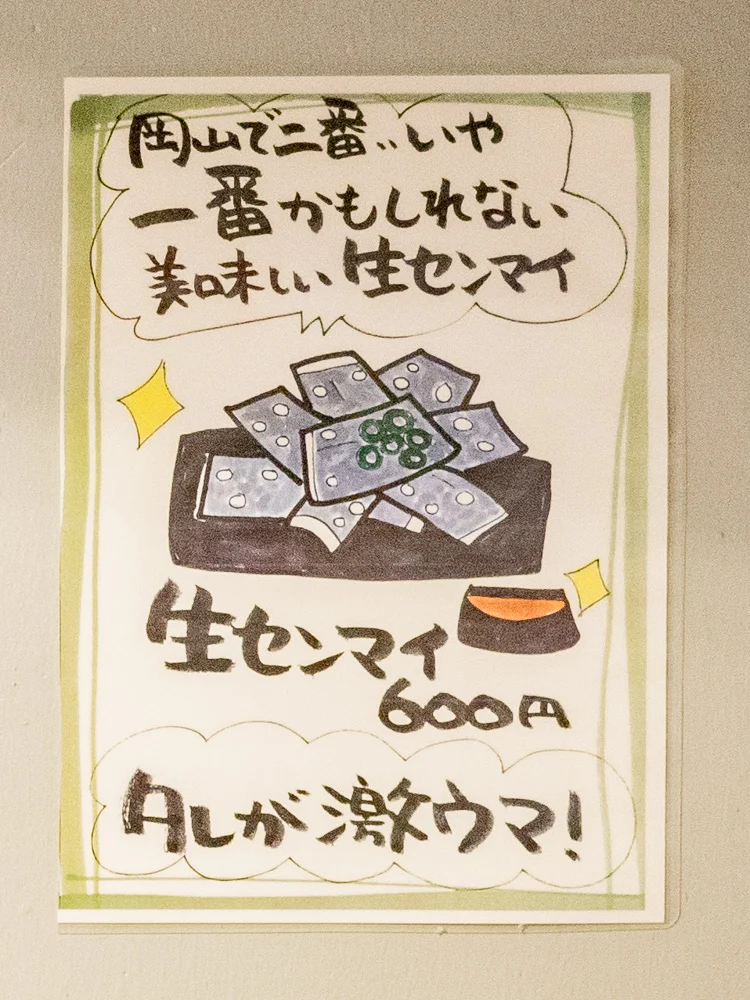 岡山で二番..いや
一番かもしれない
美味しい生センマイ
生センマイ
600円
タレが激ウマ!